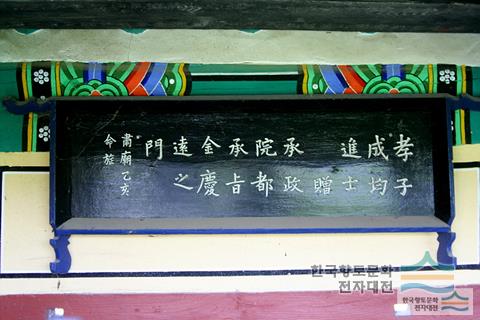 孝子
成均
進士
贈
承政
院都
承旨
金慶
遠之
門
肅廟乙亥
命旌
한국향토문화
전자대전
한국향토문화
전자대전